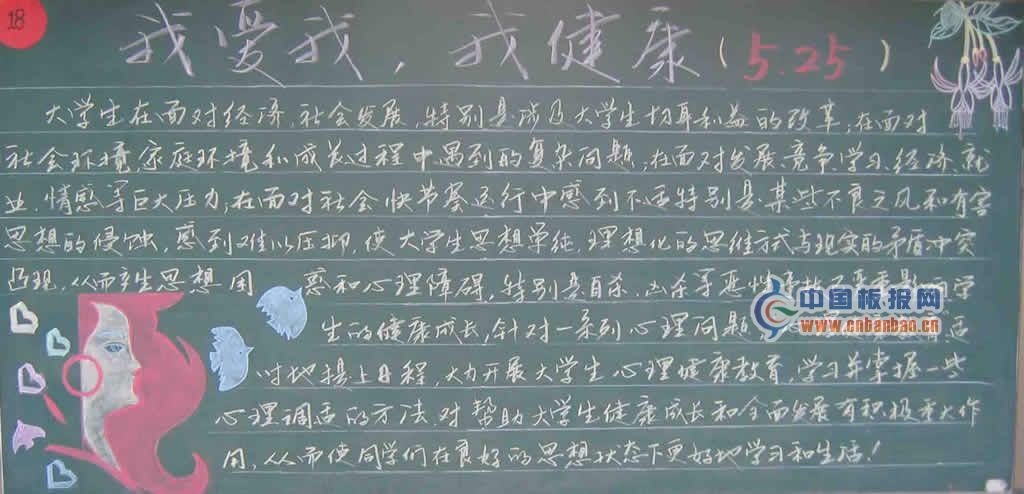 18
我爱我，我健康（5.25）
大学生在面对经济、社会发展，特别是涉及大学生切身利益的改革，在面对
社会环境、家庭环境和成长过程中遇到的复杂问题，在面对发展、竞争、学习、经济、就
业、情感等巨大压力，在面对社会快节奏运行中感到不适特别是某些不良之风和有害
思想的侵蚀，感到难以压抑，使大学生思想单纯、理想化的思维方式与现实的矛盾冲突
凸现，从而产生思想困惑和心理障碍，特别是自杀、凶杀等恶性学
生的健康成长，针对一系列心理问题，适
时地提上日程，大力开展大学生心理健康教育，学习并掌握一些
心理调适的方法，对帮助大学生健康成长和全面发展有积极重大作
用，从而使同学们在良好的思想状态下更好地学习和生活！
中国板报网
www.cnbanbao.cn